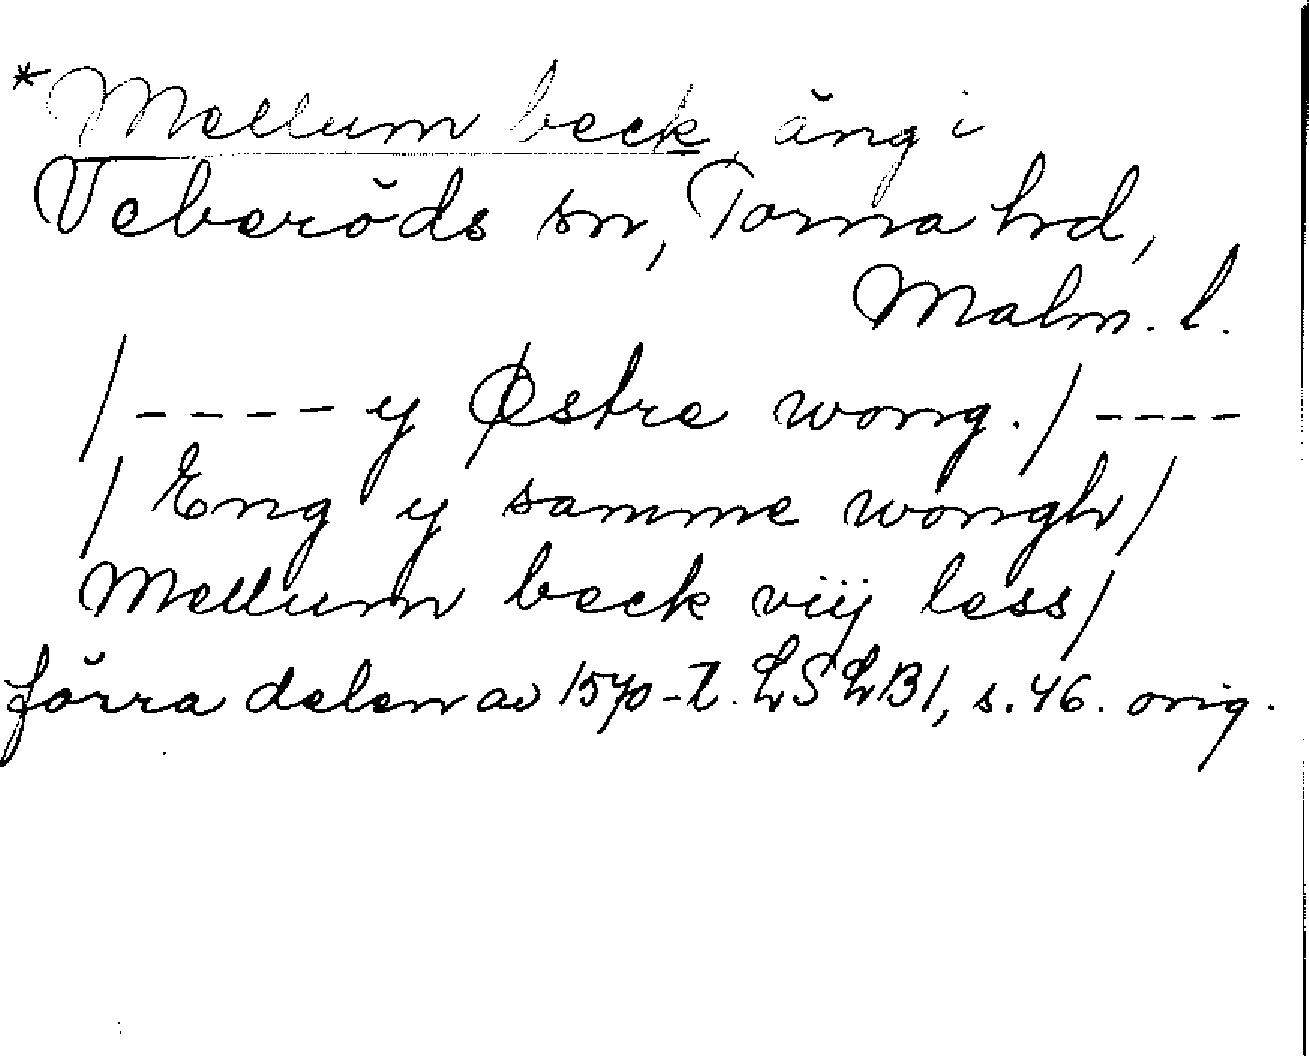 *Mellum beck, äng i
Veberöds sn, Torna hd,
Malm. l.
/ - - - - - y Østre wong. / - - - -
/ Eng y samme wongh /
Mellum beck viij less /
förra delen av 1570-t. LSLB1, s. 46. orig.